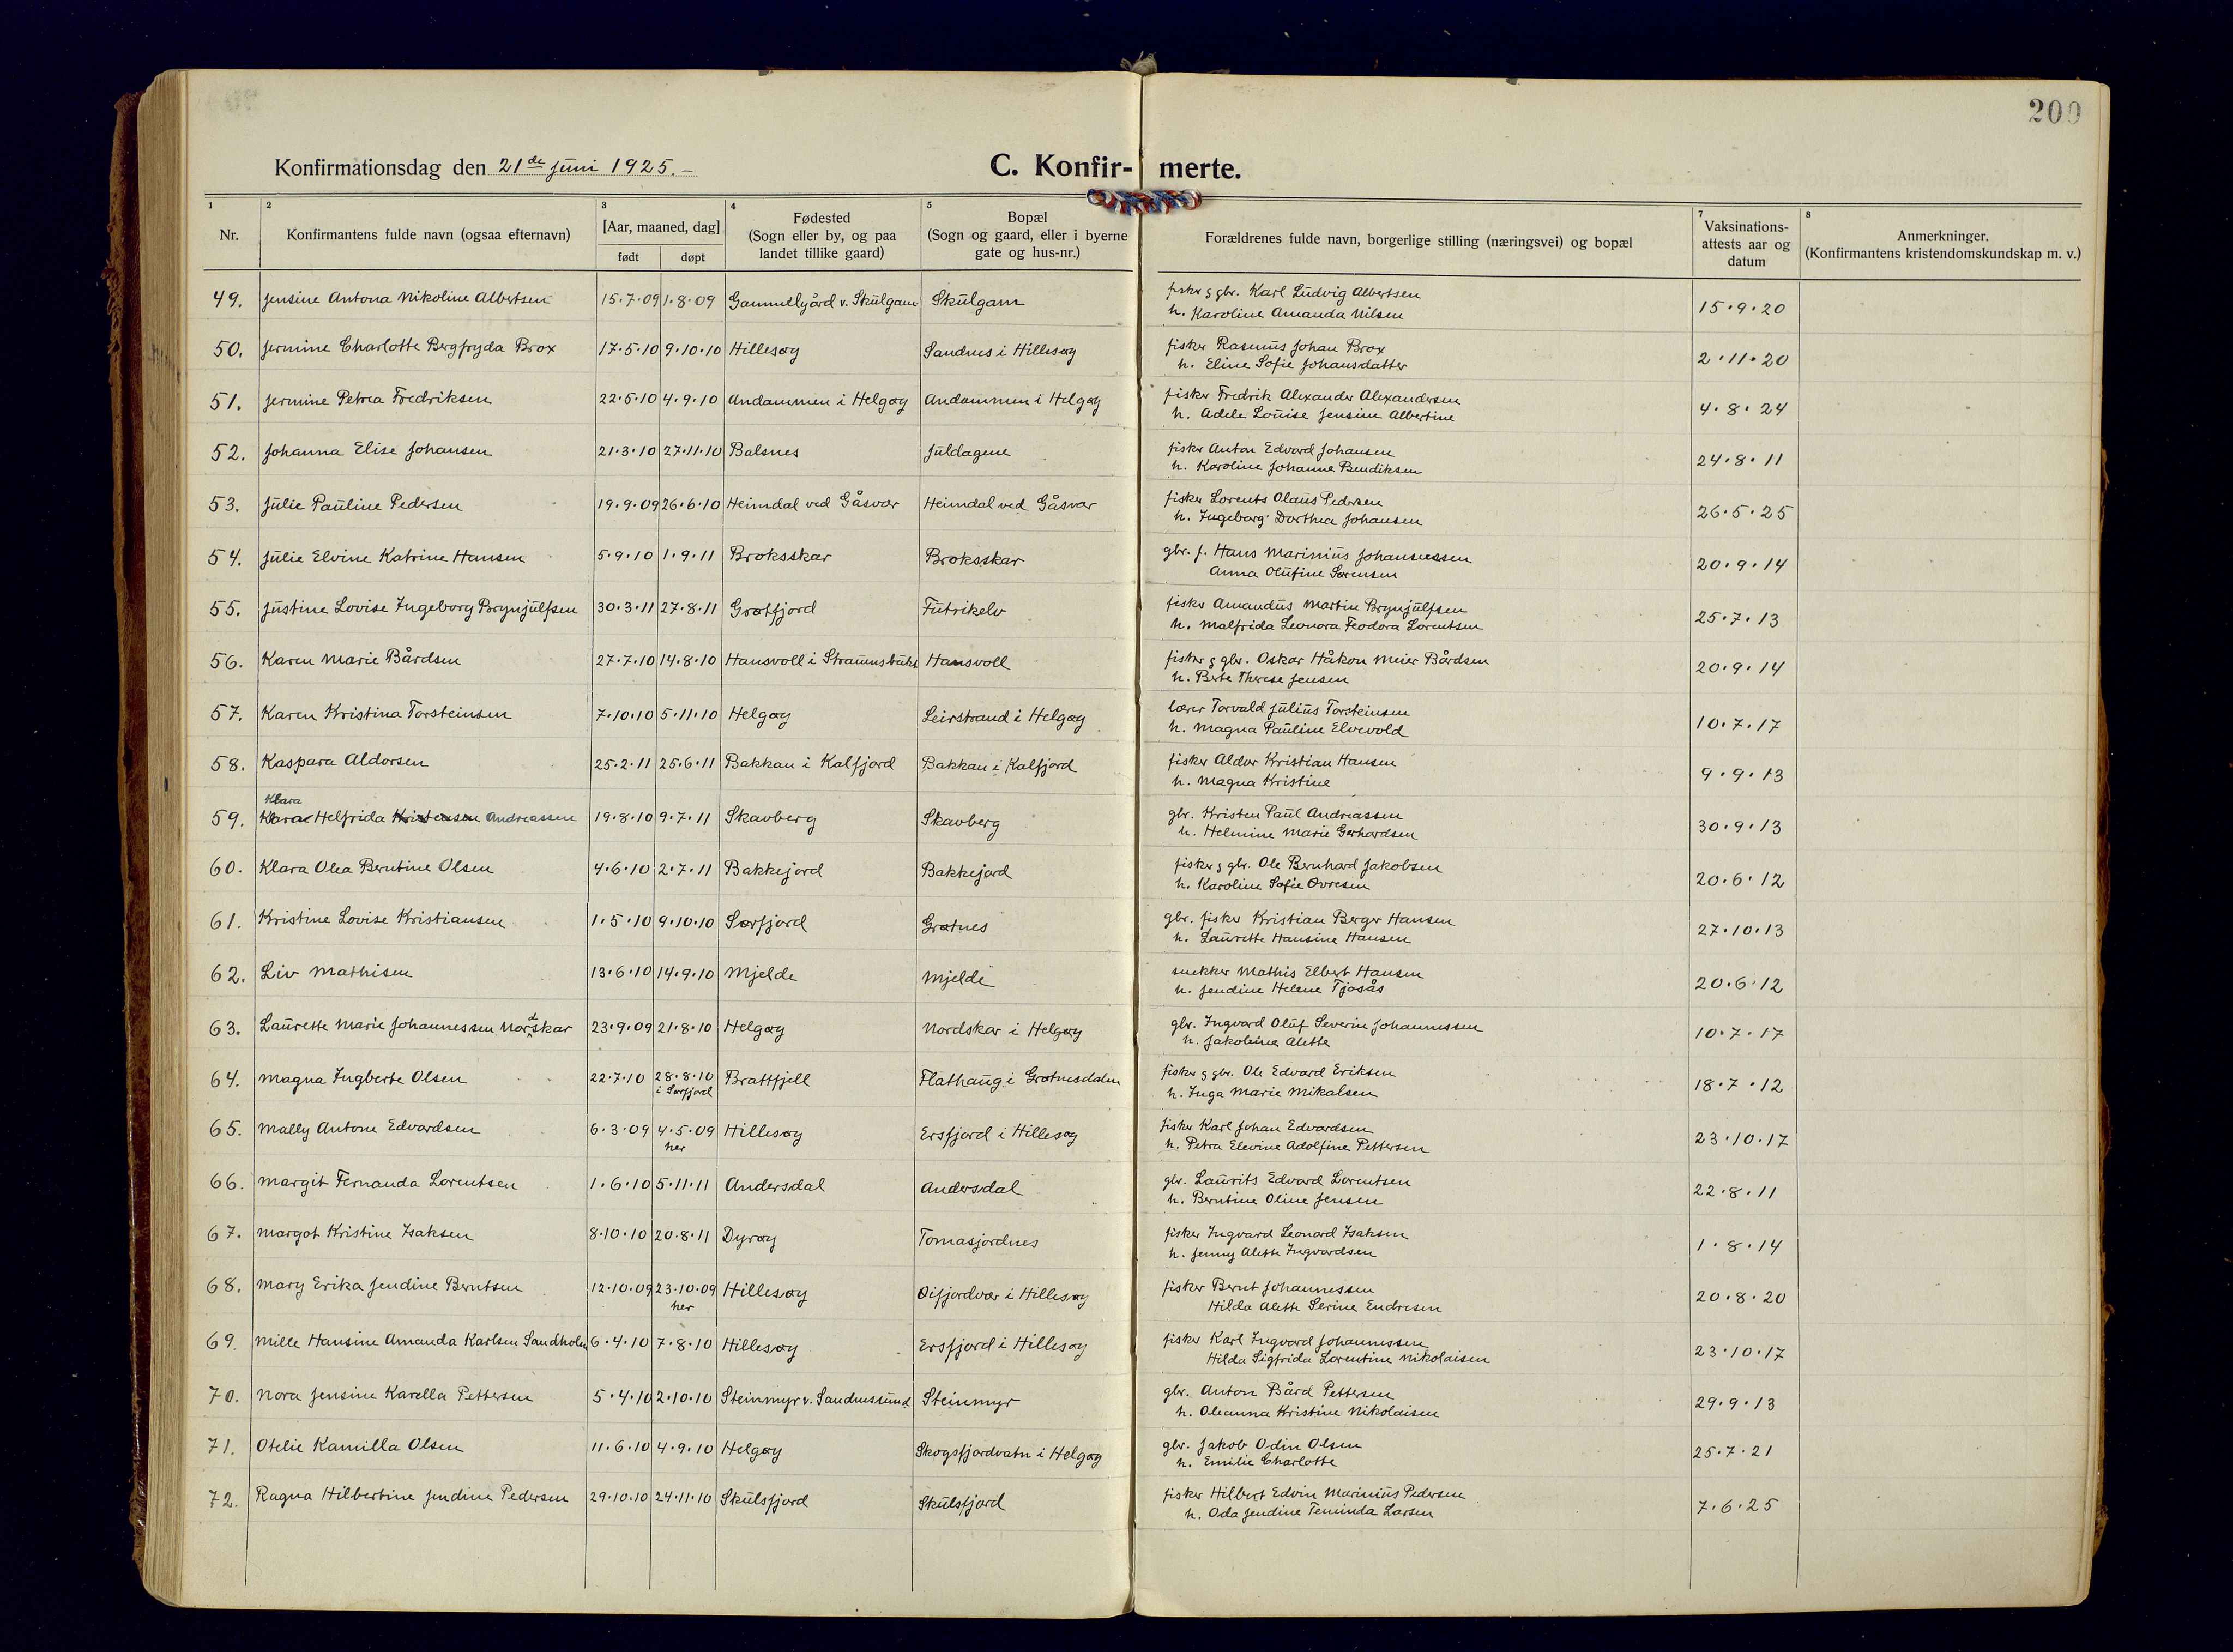 200
Konfirmationsdag den 21de juni 1925.-
C. Konfir- merte.
1 2 3 4 5 7 8
Nr.
Konfirmantens fulde navn (ogsaa efternavn)
[Aar, maaned, dag]
født døpt
Fødested
(Sogn eller by, og paa
landet tillike gaard)
Bopæl
(Sogn og gaard, eller i byerne
gate og hus-nr.)
Forældrenes fulde navn, borgerlige stilling (næringsvei) og bopæl
Vaksinations-
attests aar og
datum
Anmerkninger.
(Konfirmantens kristendomskundskap m. v.)
49. Jensine Antona Nikoline Albertsen 15.7.09 1.8.09 Gammelgård v. Skulgam Skulgam fisker & gbr. Karl Ludvig Albertsen
h. Karoline Amanda Nilsen 15.9.20
50. Jermine Charlotte Bergfryda Brox 17.5.10 9.10.10 Hillesøy Sandnes i Hillesøy fisker Rasmus Johan Brox
h. Eline Sofie Johansdatter 2.11.20
51. Jermine Petrea Fredriksen 22.5.10 4.9.10 Andammen i Helgøy Andammen i Helgøy fisker Fredrik Alexander Alexandersen
h. Adele Louise Jensine Albertine 4.8.24
52. Johanna Elise Johansen 21.3.10 27.11.10 Balsnes Juldagene fisker Anton Edvard Johansen
h. Karoline Johanne Bendiksen 24.8.11
53. Julie Pauline Pedersen 19.9.09 26.6.10 Heimdal ved Gåsvær Heimdal ved Gåsvær fisker Lorents Olaus Pedersen
h. Ingeborg Dorthea Johansen 26.5.25
54. Julie Elvine Katrine Hansen 5.9.10 1.9.11 Broksskar Broksskar gbr. f. Hans Marinius Johannessen
Anna Olufine Sørensen 20.9.14
55. Justine Lovise Ingeborg Brynjulfsen 30.3.11 27.8.11 Grøtfjord Futrikelv fisker Amandus Martin Brynjulfsen
h. Malfrida Leonora Feodora Lorentsen 25.7.13
56. Karen Marie Bårdsen 27.7.10 14.8.10 Hansvoll i Straumsbukt Hansvoll fisker & gbr. Oskar Håkon Meier Bårdsen
h. Berte Therese Jensen 20.9.14
57. Karen Kristina Torsteinsen 7.10.10 5.11.10 Helgøy Leirstrand i Helgøy lærer Torvald Julius Torsteinsen
h. Magna Pauline Elvevold 10.7.17
58. Kaspara Aldorsen 25.2.11 25.6.11 Bakkan i Kalfjord Bakkan i Kalfjord fisker Aldor Kristian Hansen
h. Magna Kristine 9.9.13
Klara
59. Klara Helfrida Kristensen Andreassen 19.8.10 9.7.11 Skavberg Skavberg gbr. Kristen Paul Andreassen
h. Helmine Marie Gerhardsen 30.9.13
60. Klara Olea Berntine Olsen 4.6.10 2.7.11 Bakkejord Bakkejord fisker & gbr. Ole Bernhard Jakobsen
h. Karoline Sofie Ovresen 20.6.12
61. Kristine Lovise Kristiansen 1.5.10 9.10.10 Sørfjord Grøtnes gbr. fisker Kristian Berger Hansen
h. Laurette Hansine Hansen 27.10.13
62. Liv Mathisen 13.6.10 14.9.10 Mjelde Mjelde snekker Mathis Elbert Hansen
h. Jendine Helene Tjosås 20.6.12
63. Laurette Marie Johannessen Nordskar 23.9.09 21.8.10 Helgøy Nordskar i Helgøy gbr. Ingvard Oluf Severin Johannessen
h. Jakobine Alette 10.7.17
64. Magna Ingberte Olsen 22.7.10 28.8.10 Brattfjell Flathaug i Grøtnesdalen fisker & gbr. Ole Edvard Eriksen
i Sørfjord h. Inga Marie Mikalsen 18.7.12
65. Mally Antone Edvardsen 6.3.09 4.5.09 Hillesøy Ersfjord i Hillesøy fisker Karl Johan Edvardsen
her h. Petra Elevine Adolfine Pettersen 23.10.17
66. Margit Fernanda Lorentsen 1.6.10 5.11.11 Andersdal Andersdal gbr. Laurits Edvard Lorentsen
h. Berntine Oline Jensen 22.8.11
67. Margot Kristine Isaksen 8.10.10 20.8.11 Dyrøy Tomasjordnes fisker Ingvard Leonard Isaksen
h. Jenny Alette Ingvardsen 1.8.14
68. Mary Erika Jendine Berntsen 12.10.09 23.10.09 Hillesøy Oifjordvær i Hillesøy fisker Bernt Johannessen
her Hilda Alette Serine Endresen 20.8.20
69. Mille Hansine Amanda Karlsen Sandholm 6.4.10 7.8.10 Hillesøy Ersfjord i Hillesøy fisker Karl Ingvard Johannessen
Hilda Sigfrida Lorentine Nikolaisen 23.10.17
70. Nora Jensine Karella Pettersen 5.4.10 2.10.10 Steinmyr v. Sandnessund Steinmyr gbr. Anton Bård Pettersen
h. Oleanna Kristine Nikolaisen 29.9.13
71. Otelie Kamilla Olsen 11.6.10 4.9.10 Helgøy Skogsfjordvatn i Helgøy gbr. Jakob Odin Olsen
h. Emilie Charlotte 25.7.21
72. Ragna Hilbertine Jendine Pedersen 29.10.10 24.11.10 Skulsfjord Skulsfjord fisker Hilbert Edvin Marinius Pedersen
h. Oda Jendine Teminda Larsen 7.6.25